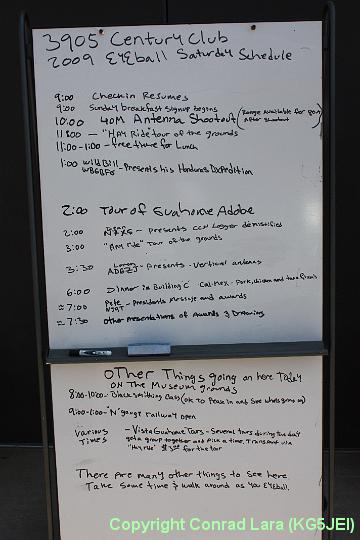 3905 Century Club
2009 EYEball Saturday Schedule
9:00 Checkin Resumes
9:00 Sunday breakfast signup begins
10:00 40M Antenna Shootout (Range Available for 80M
After Shootout)
11:00 - "HAM Ride" tour of the grounds
11:00-1:00 - free time for Lunch
1:00 Wild Bill
WB6BFG - Presents his Honduras DXpedition
2:00 Tour of Guahome Adobe
2:00 - Presents CCN Logger demistified
3:00 "HAM ride" Tour of the grounds
3:30 - Presents - Vertical antennas
6:00 Dinner in Building C Cal-Mex - Pork, chicken and
≈7:00 Pete - Presidents message and awards
≈7:30 other presentations of Awards & Drawing
OTHer Things going on here Today
ON The Museum grounds
8:00-10:00 - Black smithing class (ok To Pease in and See whats going on)
9:00-1:00 - 'N' gauge railway open
various - Vista Guahome Tours - Several tours during the day
Times get a group together and Pick a time. Transport via
"Hay ride" for the tour
There Are many other things to see here
Take some time & walk around as you EYEball.
Copyright Conrad Lara (KG5JEI)